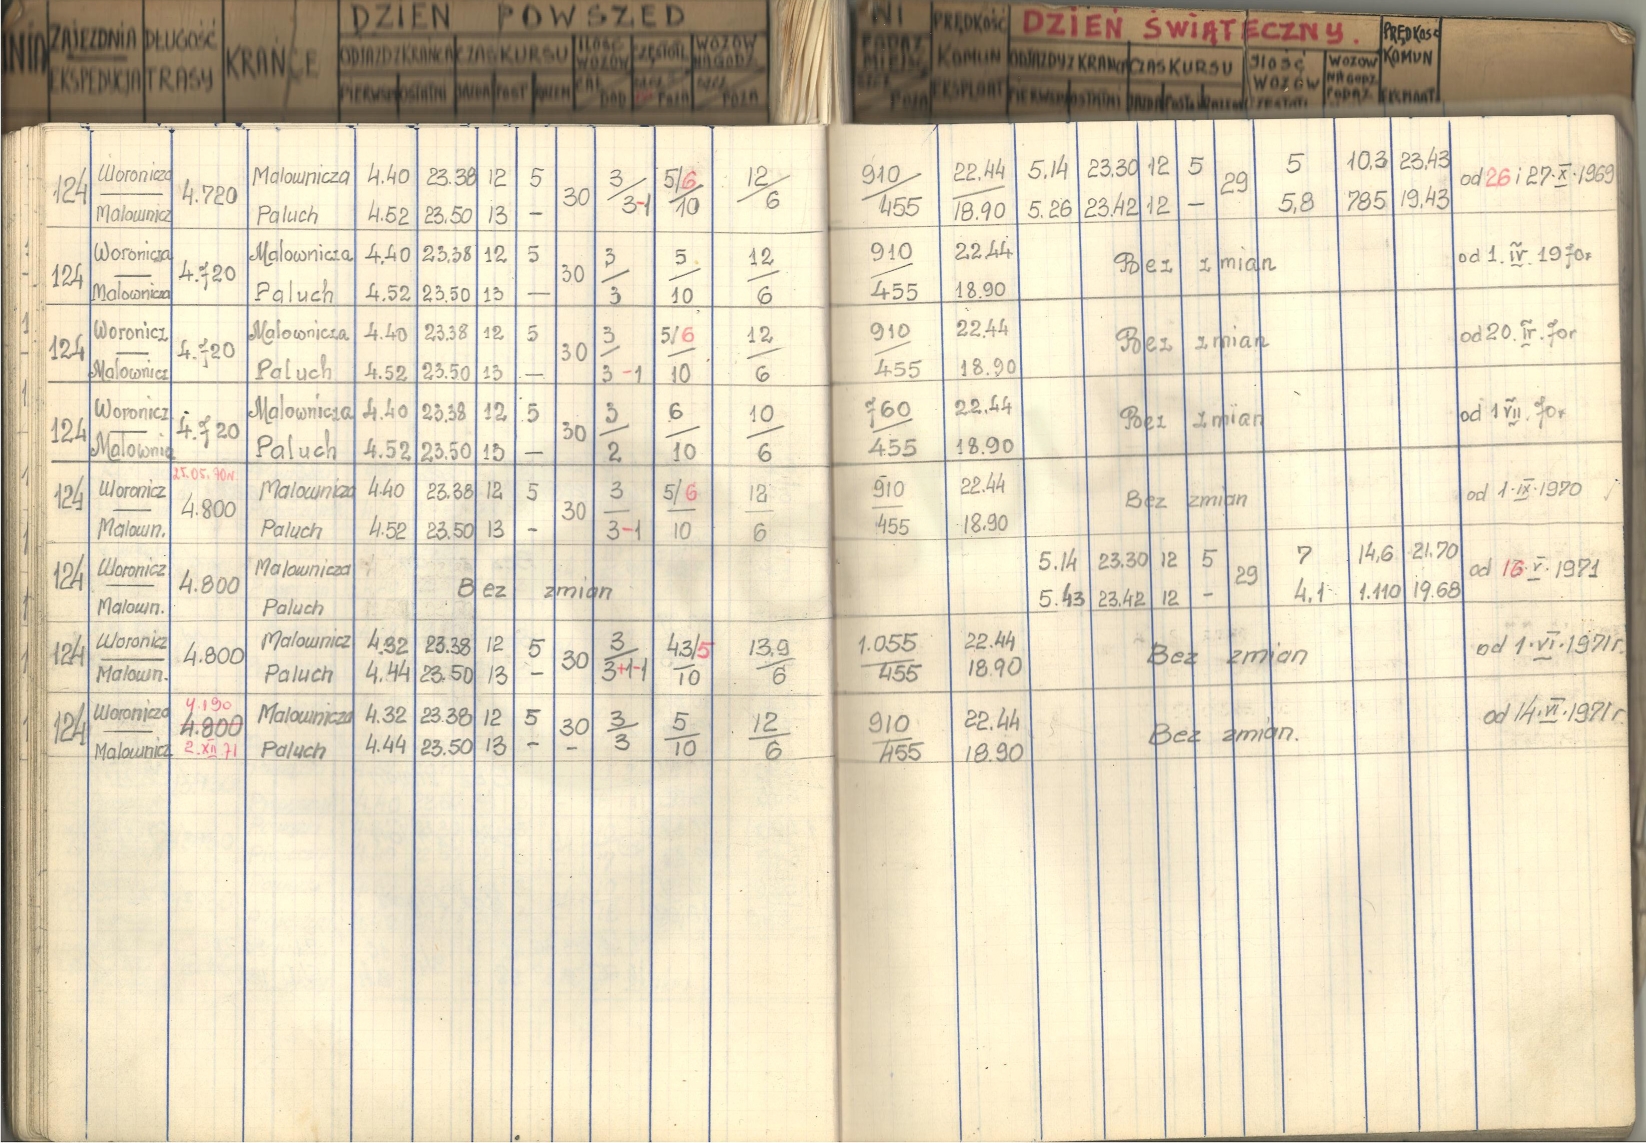 DZIEŃ POWSZED
NI DZIEŃ ŚWIĄTECZNY.
NIA ZAJEZDNIA DŁUGOŚĆ KRAŃCE ODJAZD Z KRAŃCA CZAS KURSU ILOŚĆ WOZÓW CZĘSTOTL WOZÓW NA GODZ.
EKSPEDYCJA TRASY PIERWSZY OSTATNI JAZDA POST RAZEM CAŁ. DOD SZCZ POZA SZCZ POZA
PODAŻ MIEJSC PRĘDKOŚĆ KOMUN ODJAZDY Z KRAŃCA CZAS KURSU ILOŚĆ WOZÓW WOZÓW NA GODZ. PODAŻ PRĘDKOŚĆ KOMUN
SZCZ POZA EKSPLOAT PIERWSZY OSTATNI JAZDA POSTÓJ RAZEM CZĘSTOTL EKSPLOAT.
124 Woronicza 4.720 Malownicza 4.40 23.38 12 5 30 3 5/6 12 910 22.44 5.14 23.30 12 5 29 5 10,3 23,43 od 26 i 27.X.1969
Malownicz Paluch 4.52 23.50 13 – 3-1 10 6 455 18.90 5.26 23.42 12 – 5,8 785 19,43
124 Woronicza 4.720 Malownicza 4.40 23.38 12 5 30 3 5 12 910 22.44 Bez zmian od 1.IV.1970r
Malownicza Paluch 4.52 23.50 13 — 3 10 6 455 18.90
124 Woronicz 4.720 Malownicza 4.40 23.38 12 5 30 3 5/6 12 910 22.44 Bez zmian od 20.IV.70r
Malownicz Paluch 4.52 23.50 13 — 3-1 10 6 455 18.90
124 Woronicz 4.720 Malownicza 4.40 23.38 12 5 30 3 6 10 760 22.44 Bez zmian od 1 VII.70r
Malownic Paluch 4.52 23.50 13 — 2 10 6 455 18.90
25.05.70r.
124 Woronicz 4.800 Malownicza 4.40 23.38 12 5 30 3 5/6 12 910 22.44 Bez zmian od 1.IX.1970
Malown. Paluch 4.52 23.50 13 – 3-1 10 6 455 18.90
124 Woronicz 4.800 Malownicza Bez zmian 5.14 23.30 12 5 29 7 14,6 21.70 od 16.V.1971
Malown. Paluch 5.43 23.42 12 – 4,1 1.110 19.68
124 Woronicz 4.800 Malownicz 4.32 23.38 12 5 30 3 4,3/5 13,9 1.055 22.44 Bez zmian od 1.VI.1971r.
Malown. Paluch 4.44 23.50 13 – 3+1-1 10 6 455 18.90
4.190
124 Woronicza 4.800 Malownicza 4.32 23.38 12 5 30 3 5 12 910 22.44 Bez zmian. od 14.VI.1971r
Malownicz 2.XII 71 Paluch 4.44 23.50 13 – – 3 10 6 455 18.90